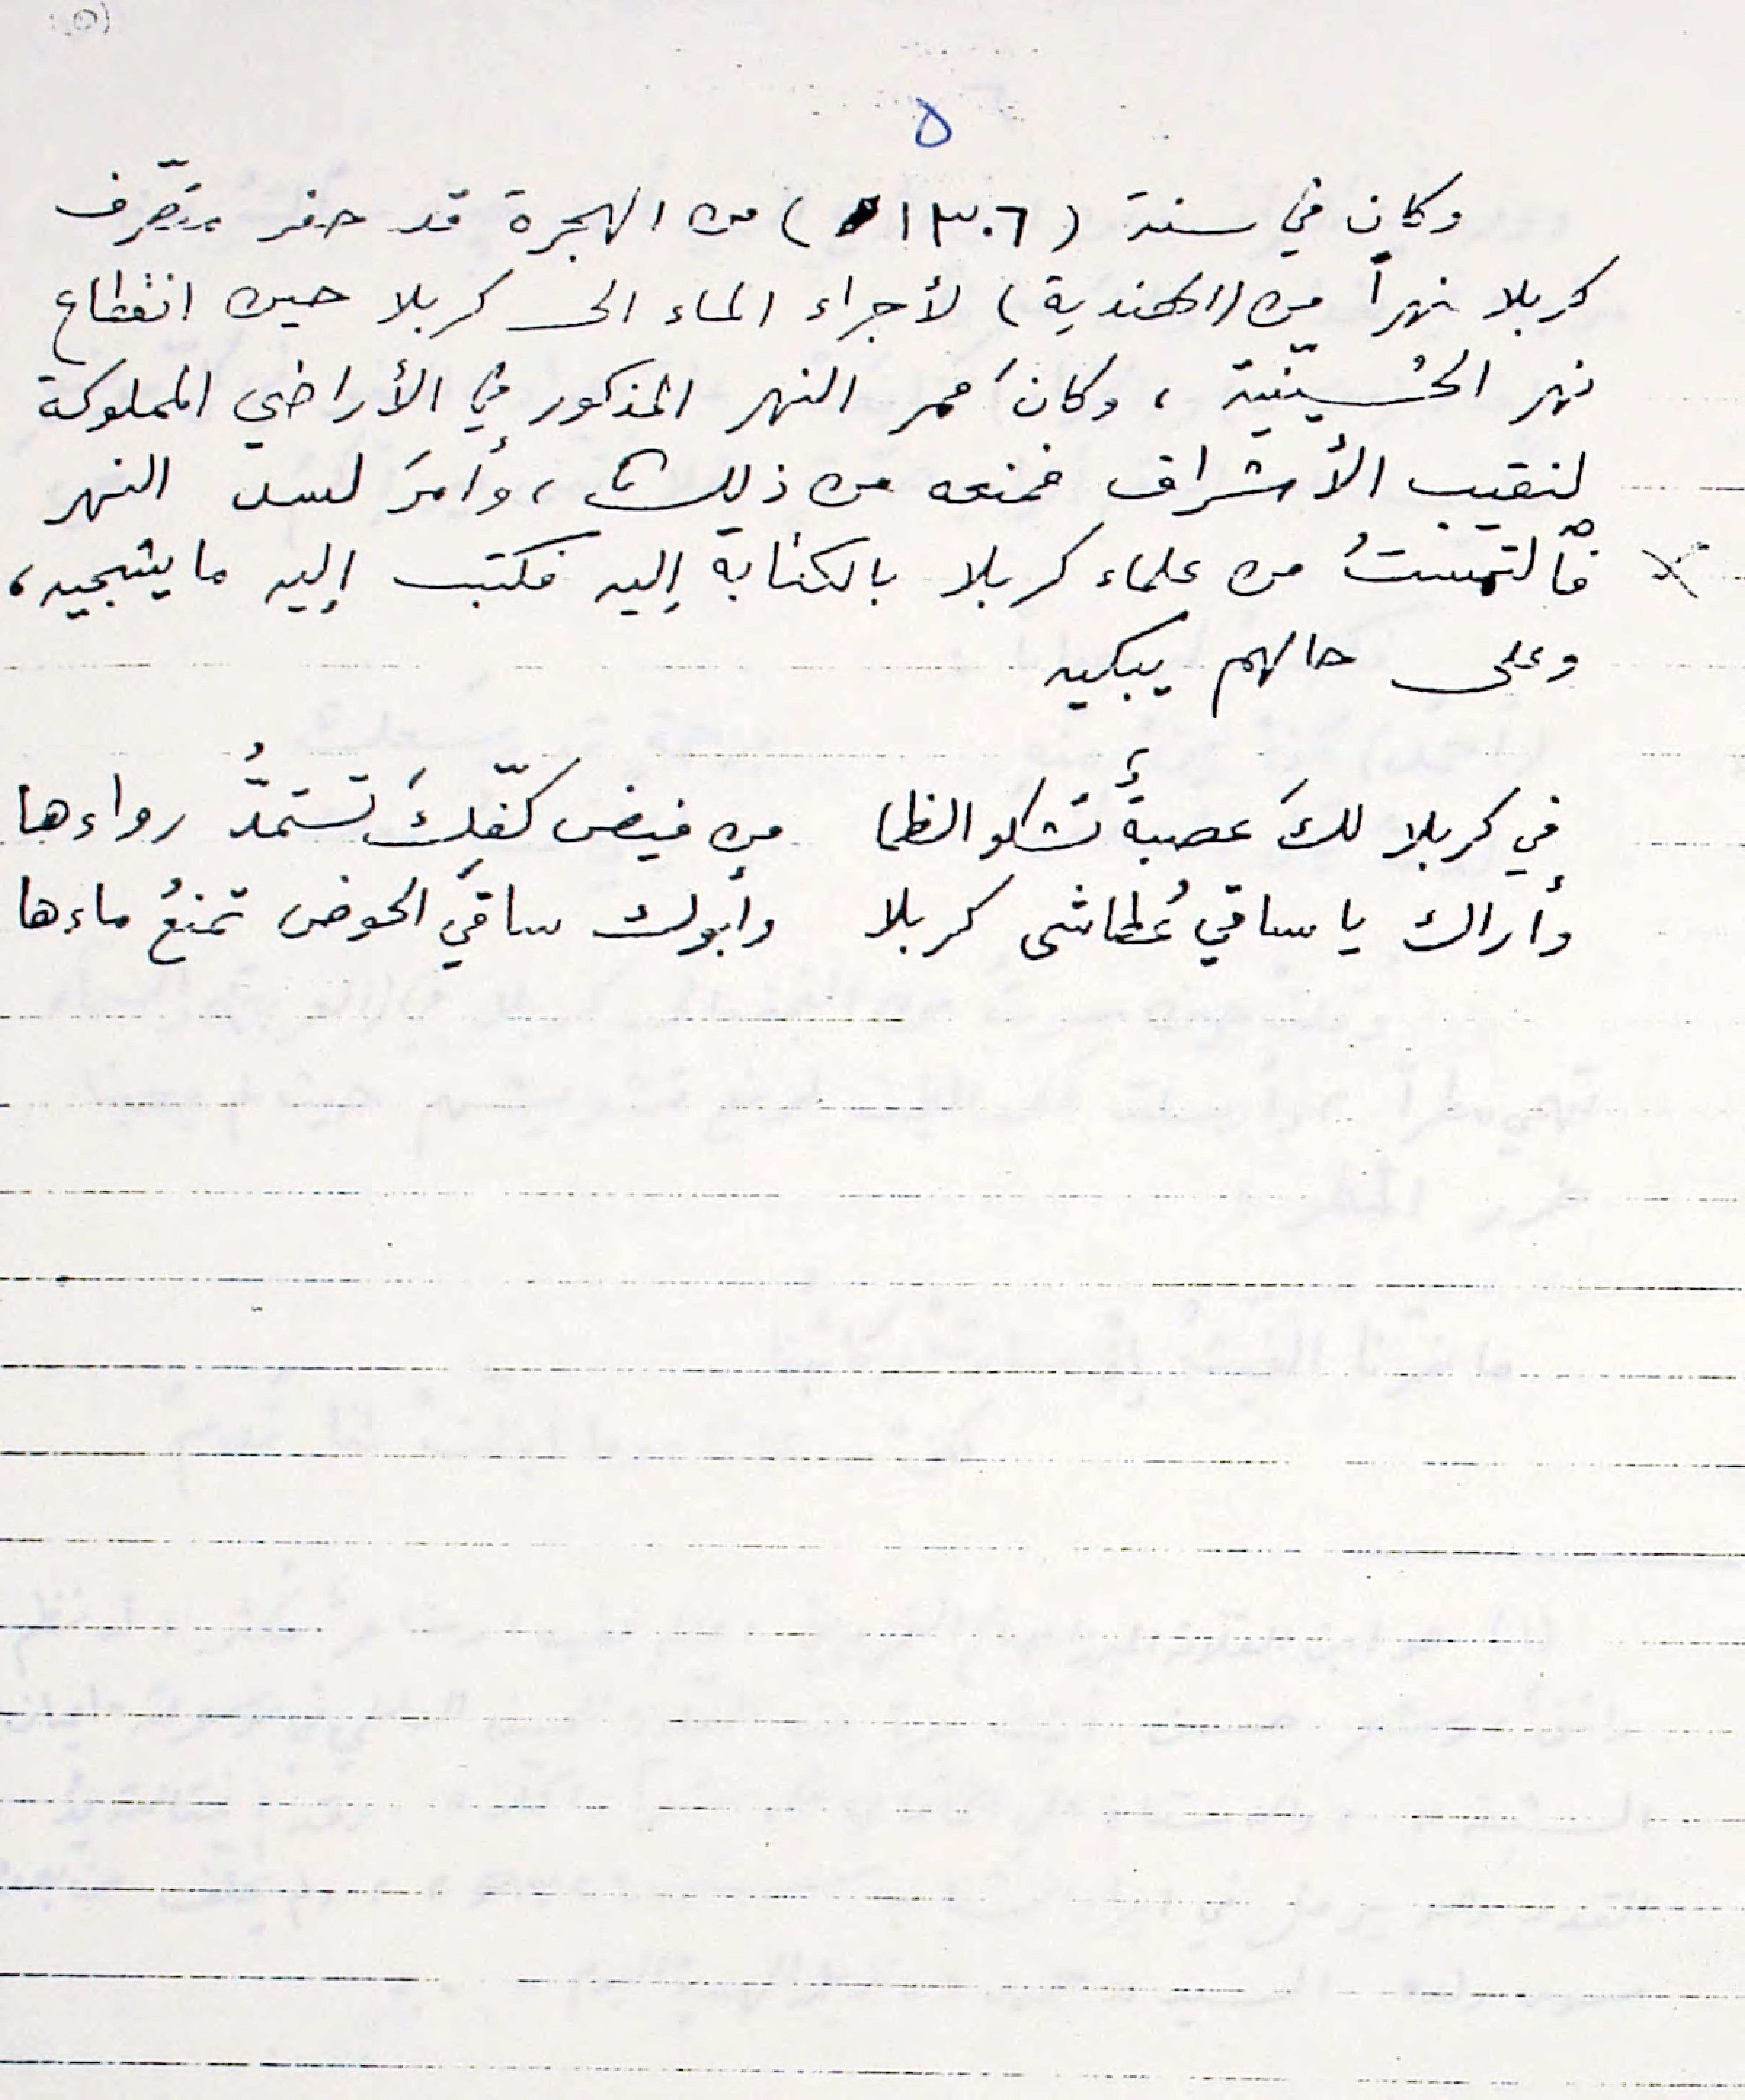 ٥
وكان في سنة (١٣٠٦) من الهجرة قد حفر متصّرف
كربلا نهراً من (الهندية) لأجراء الماء الى كربلا حين انقطاع
نهر الحُسينّية ، وكانَ ممر النهر المذكور في الأراضي المملوكة
لنقيب الأشراف فمنعه من ذلك ، وأمرَ لسد النهر
فألتمستُ من علماء كربلا بالكتابة إليه فكتب إليه ما يشجيه ،
وعلى حالهم يبكيه
في كربلا لكَ عصبةٌ تشكو الظما من فيض كفّكَ تستمدُّ رواءها
وأراك يا ساقي عُطاشى كربلا وأبوك ساقي الحوض تمنعُ ماءها